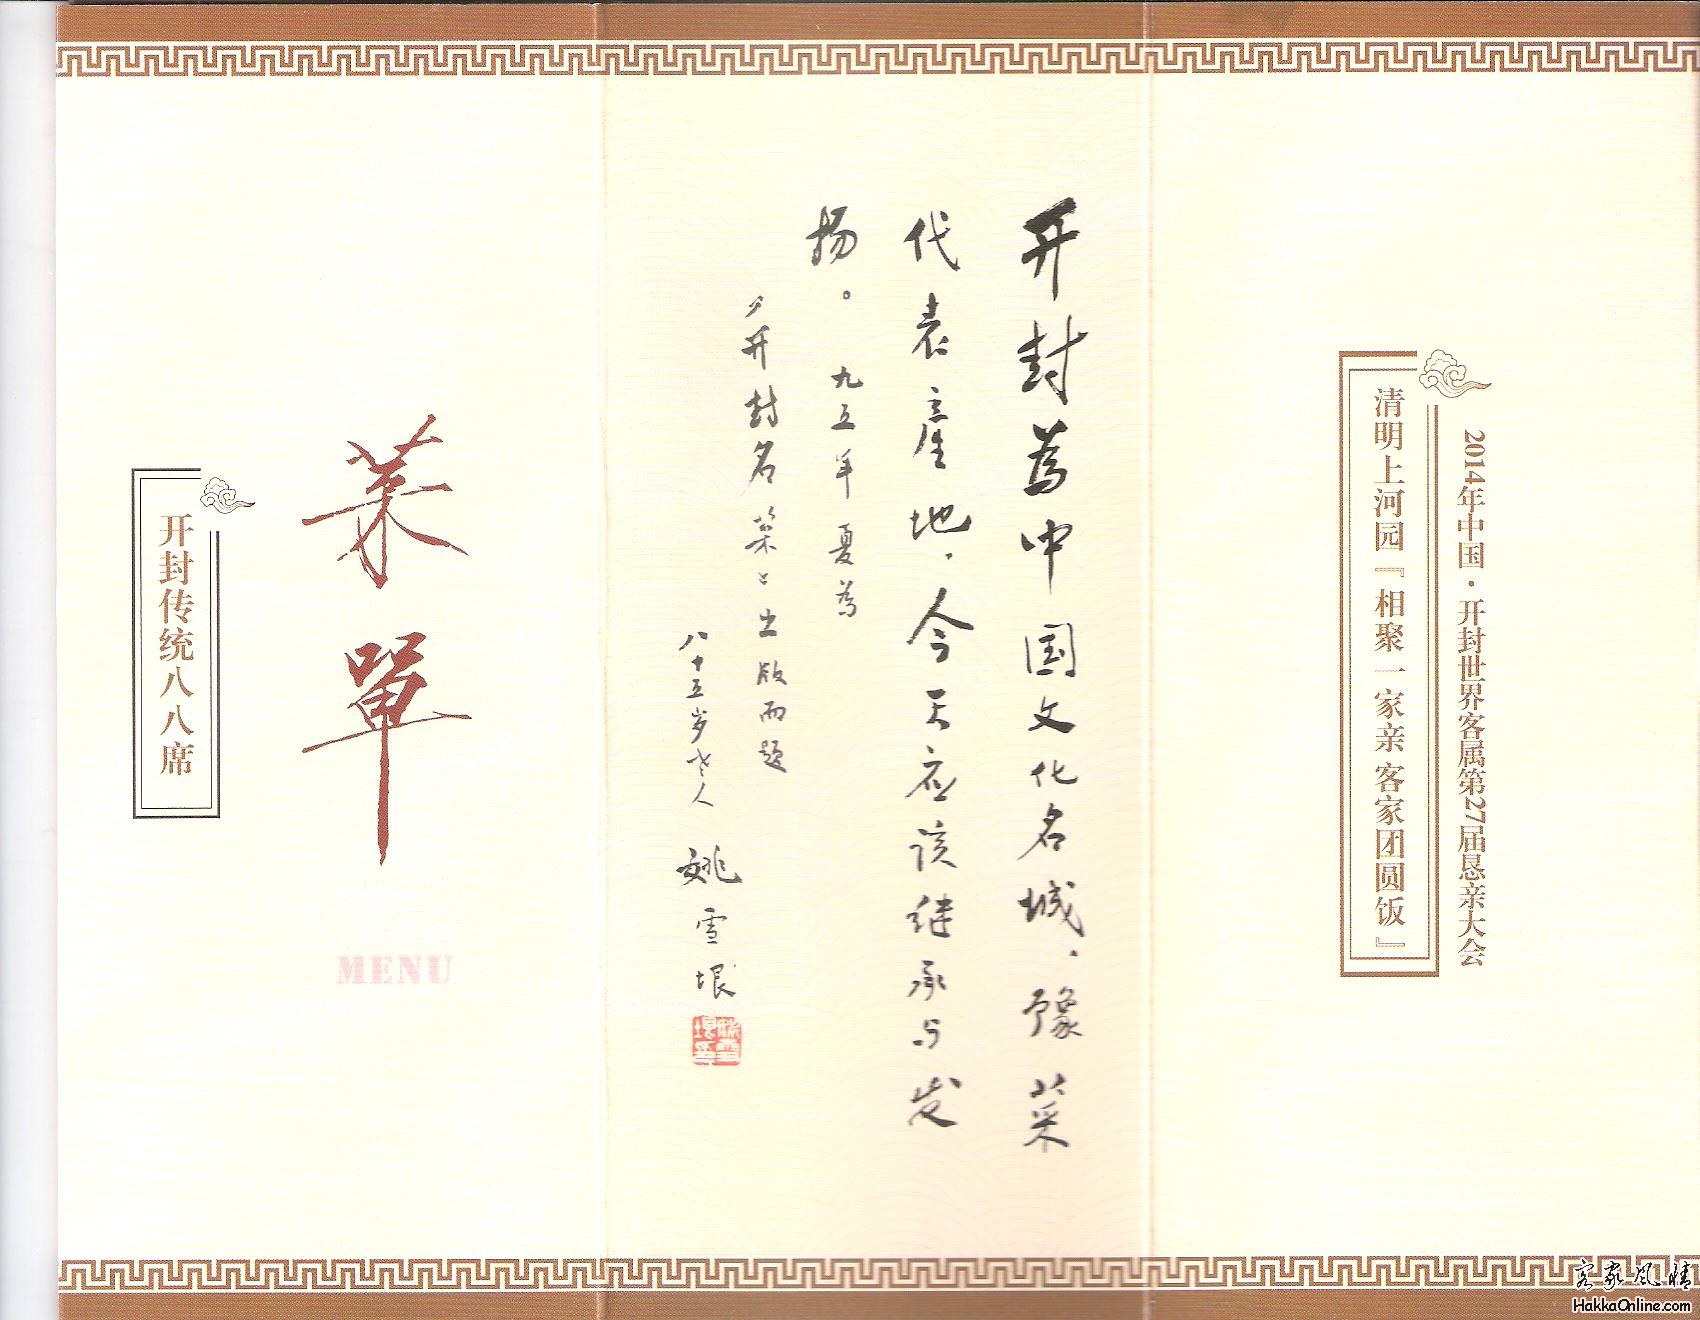 2014年中国·开封世界客属第27届恳亲大会
清明上河园『相聚一家亲 客家团圆饭』
开封为中国文化名城，豫菜
代表产地，今天应该继承与发
扬。
九五年夏为
《开封名菜》出版而题
八十五岁老人 姚雪垠
菜單
MENU
开封传统八八席
客家风情
HakkaOnline.com